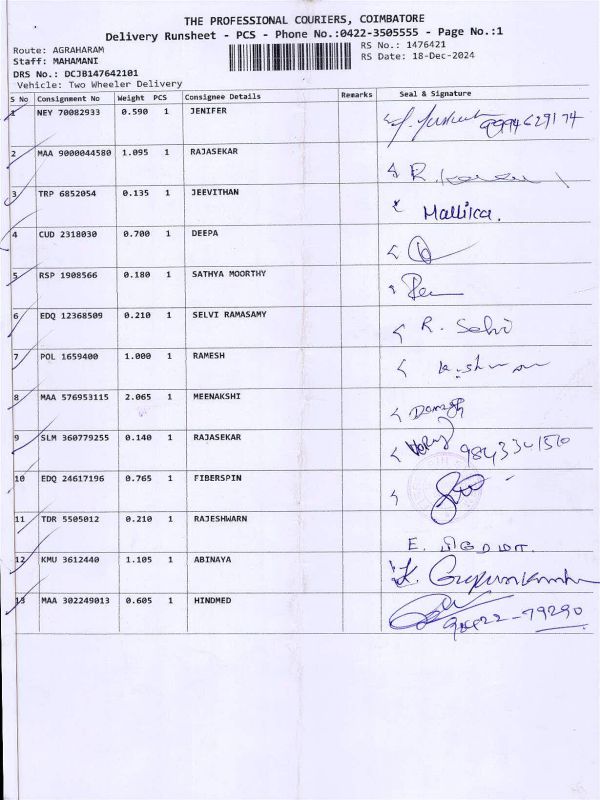 THE PROFESSIONAL COURIERS, COIMBATORE
Delivery Runsheet - PCS - Phone No.:0422-3505555 - Page No.:1
Route: AGRAHARAM
RS No.: 1476421
Staff: MAHAMANI
RS Date: 18-Dec-2024
DRS No.: DCJB147642101
Vehicle: Two Wheeler Delivery
S No Consignment No Weight PCS Consignee Details Remarks Seal & Signature
1 NEY 70082933 0.590 1 JENIFER 9994629174
2 MAA 9000044580 1.095 1 RAJASEKAR R.
3 TRP 6852054 0.135 1 JEEVITHAN Mallika.
4 CUD 2318030 0.700 1 DEEPA
5 RSP 1908566 0.180 1 SATHYA MOORTHY
6 EDQ 12368509 0.210 1 SELVI RAMASAMY R. Selvi
7 POL 1659400 1.000 1 RAMESH
8 MAA 576953115 2.065 1 MEENAKSHI
9 SLM 360779255 0.140 1 RAJASEKAR 9843341510
10 EDQ 24617196 0.765 1 FIBERSPIN
11 TDR 5505012 0.210 1 RAJESHWARN E.
12 KMU 3612440 1.105 1 ABINAYA
13 MAA 302249013 0.605 1 HINDMED 98422-79290